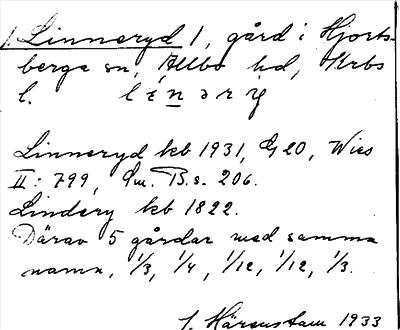 1. Linneryd 1, gård i Hjorts-
berga sn, Allbo hd, Krbs
l. lı́nǝrẏ
Linneryd kb 1931, G 20, Wies
II: 799, Sm. B. s. 206.
Lindery kb 1822.
Därav 5 gårdar med samma
namn, 1/3, 1/4, 1/12, 1/12, 1/3.
J. Härenstam 1933